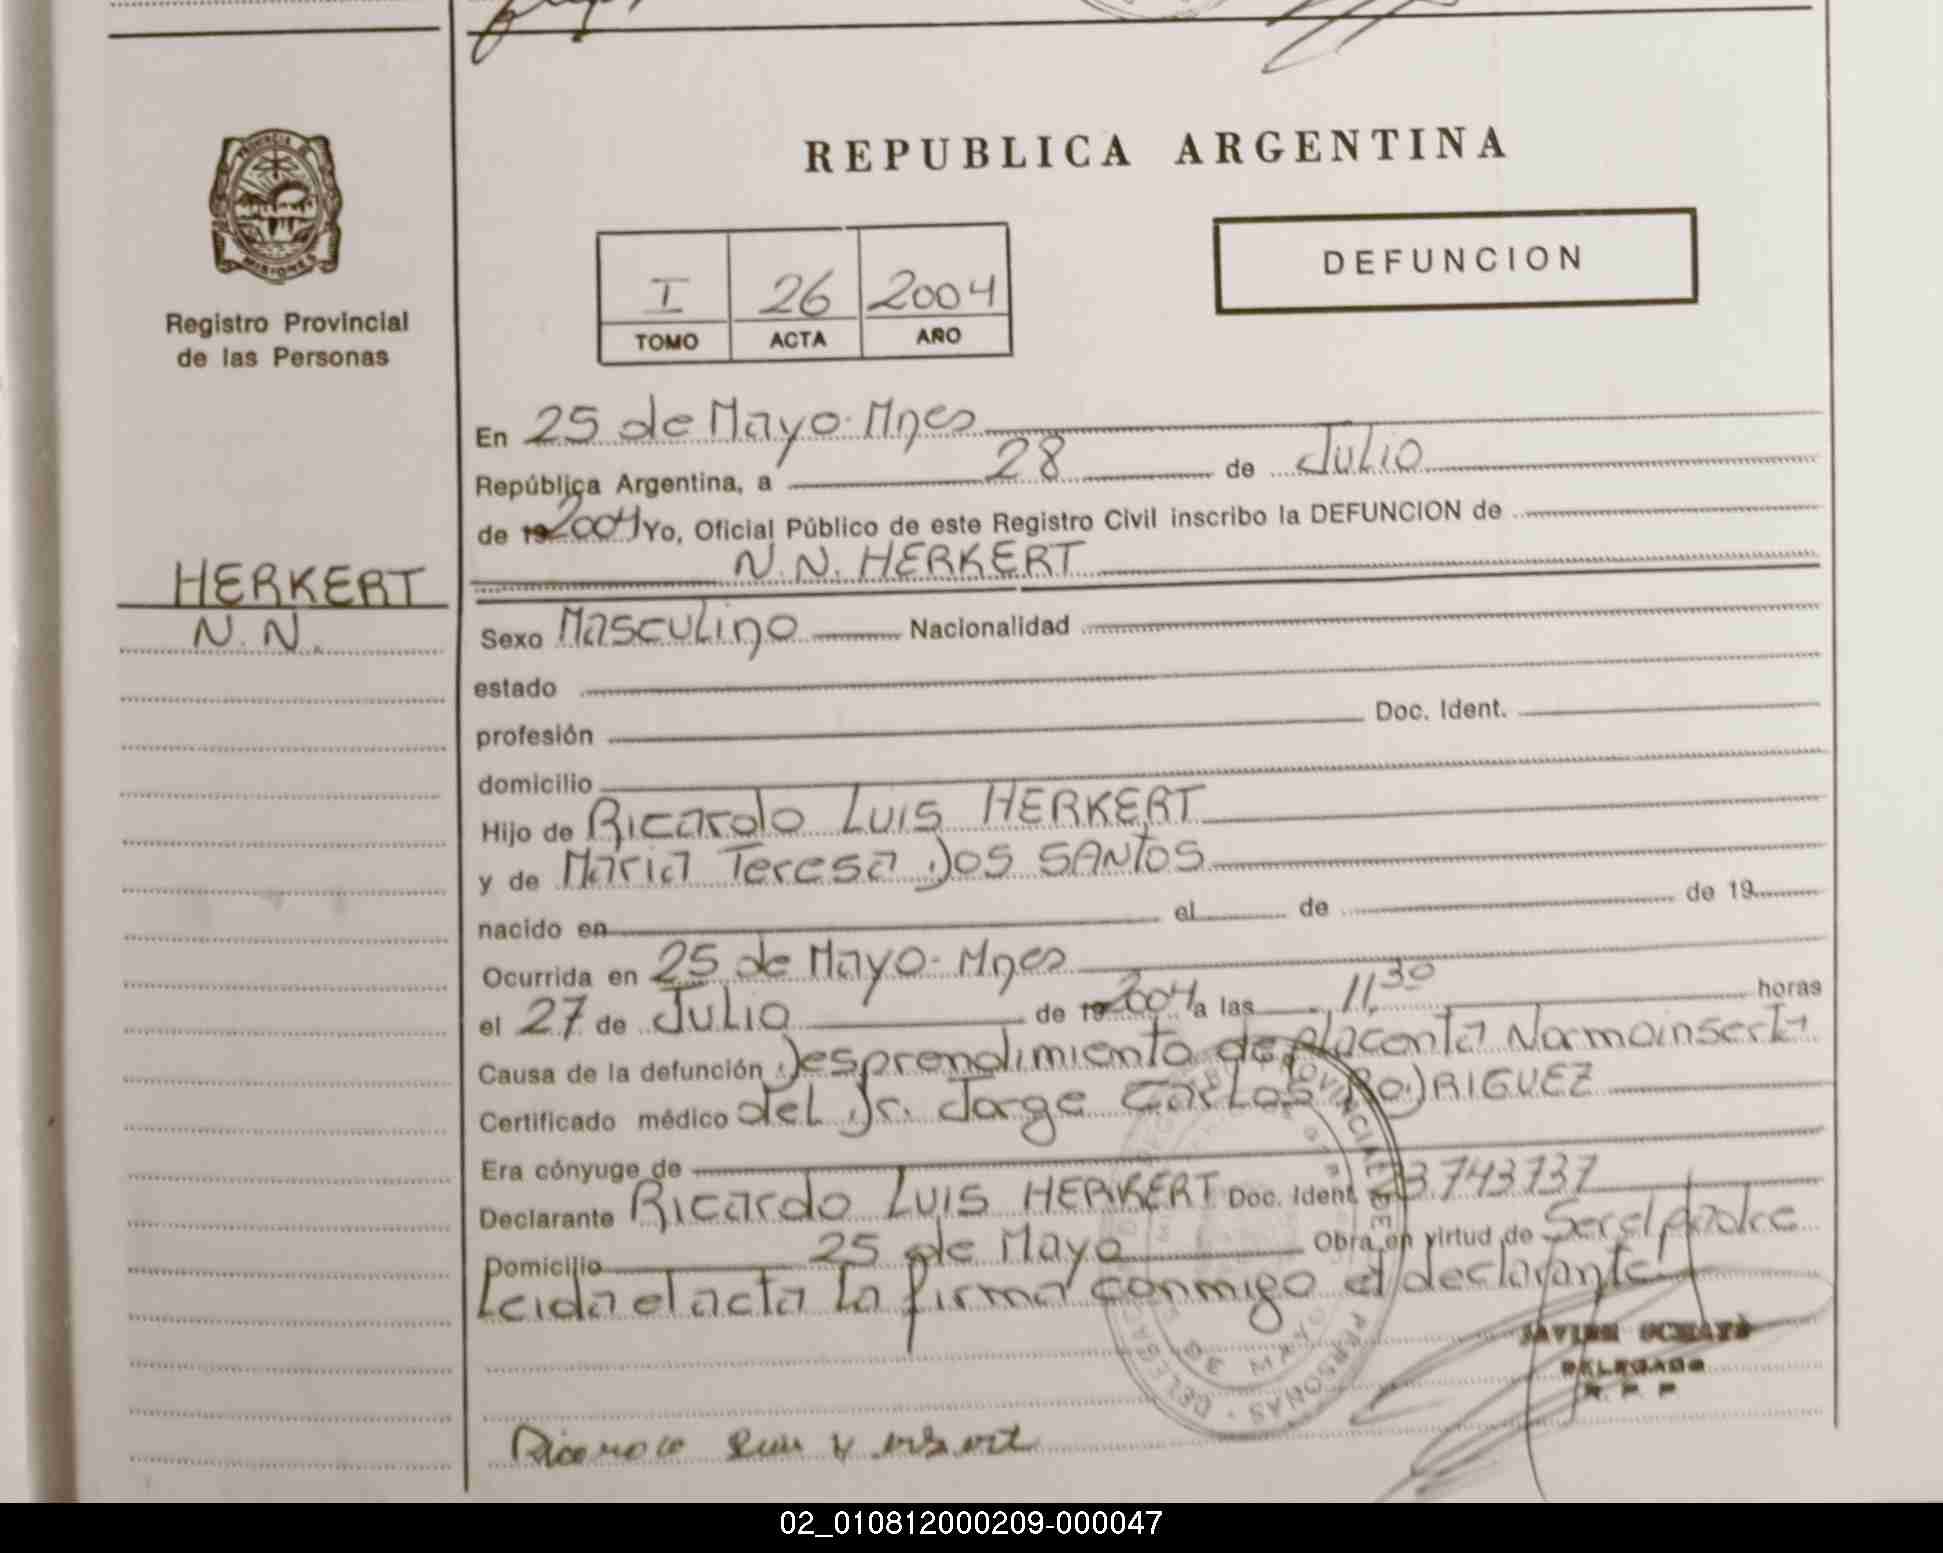 REPUBLICA ARGENTINA
PROVINCIA DE
MISIONES
Registro Provincial
de las Personas
DEFUNCION
I 26 2004
TOMO ACTA AÑO
En 25 de Mayo. Mnes
República Argentina, a 28 de Julio
de 19 2004 Yo, Oficial Público de este Registro Civil inscribo la DEFUNCION de
N. N. HERKERT
HERKERT
N. N.
Sexo Masculino Nacionalidad
estado
profesión Doc. Ident.
domicilio
Hijo de Ricardo Luis HERKERT
y de Maria Teresa Dos SANtOS
nacido en el de de 19
Ocurrida en 25 de Mayo - Mnes
el 27 de Julio de 19 2004 a las 11,30 horas
Causa de la defunción Desprendimiento de placenta Normoinserta
Certificado médico del Dr. Jorge Carlos RODRIGUEZ
Era cónyuge de
Declarante Ricardo Luis HERKERT Doc. Ident 23.743737
Domicilio 25 de Mayo Obra en virtud de Ser el padre
Leida el acta la firma conmigo el declarante
JAVIER
DELEGADO
R. P. P
02_010812000209-000047